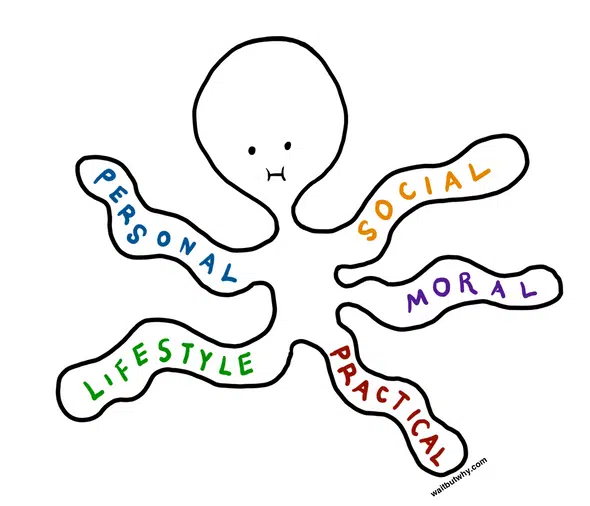 PERSONAL
SOCIAL
MORAL
LIFESTYLE
PRACTICAL
waitbutwhy.com